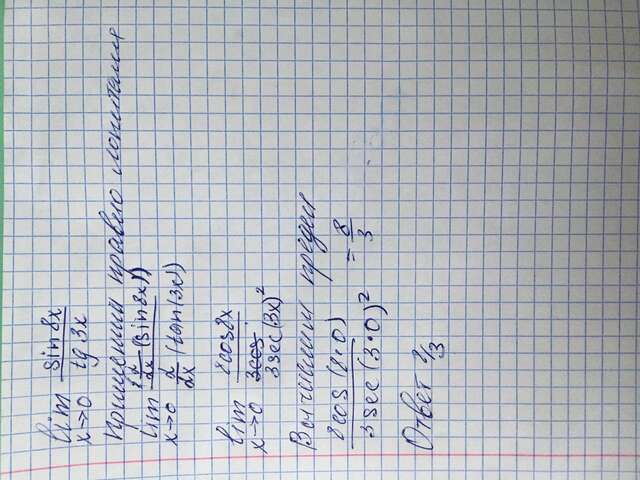 lim sin 8x / tg 3x
x→0
Применим правило лопиталя
lim d/dx (sin(8x)) / d/dx (tan(3x))
x→0
lim 8cos 8x / 3sec(3x)²
x→0
Вычислим предел
8cos(8·0) / 3sec(3·0)² = 8/3
Ответ 8/3